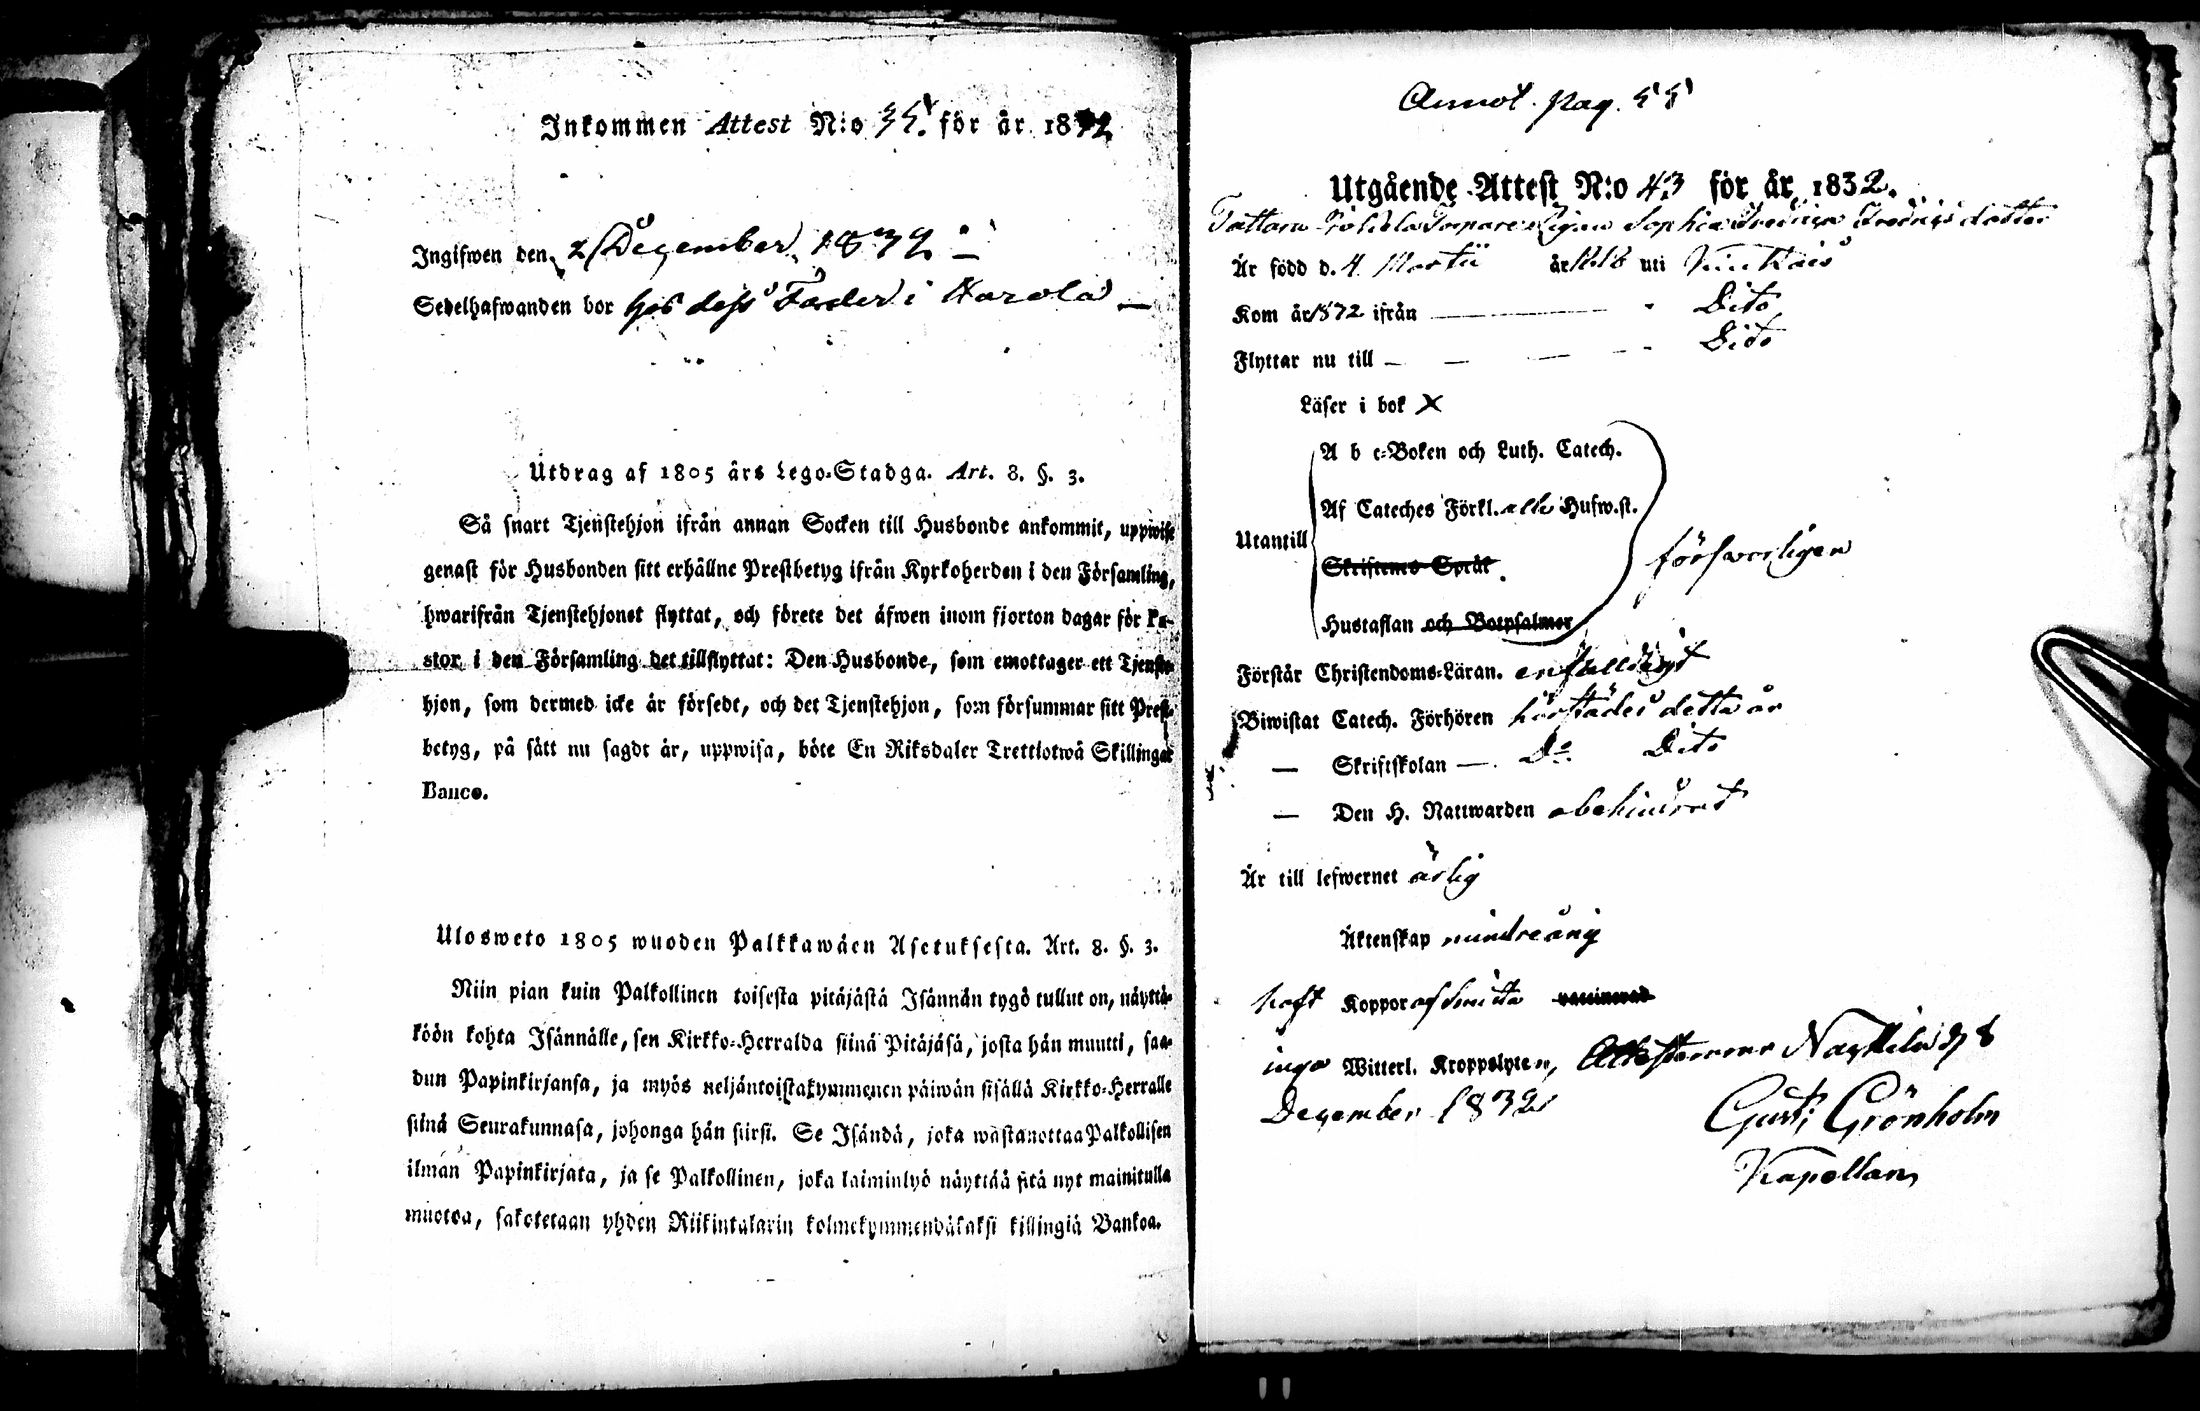 Inkommen Attest N:o 35. för år 1832
Ingifwen den 2 December 1832
Sedelhafwanden bor hos dess Fader i Harola
Utdrag af 1805 års Lego-Stadga. Art. 8. §. 3.
Så snart Tjenstehjon ifrån annan Socken till Husbonde ankommit, uppwise
genast för Husbonden sitt erhållne Prestbetyg ifrån Kyrkoherden i den Församling,
hwarifrån Tjenstehjonet flyttat, och förete det äfwen inom fjorton dagar för Pa-
stor i den Församling det tillflyttat: Den Husbonde, som emottager ett Tjenste-
hjon, som dermed icke är försedt, och det Tjenstehjon, som försummar sitt Prest-
betyg, på sätt nu sagdt är, uppwisa, böte En Riksdaler Trettiotwå Skillingar
Banco.
Ulosweto 1805 wuoden Palkkawäen Asetuksesta. Art. 8. §. 3.
Niin pian kuin Palkollinen toisesta pitäjästä Isännän tygö tullut on, näyttä-
köön kohta Isännälle, sen Kirkko-Herralda siinä Pitäjäsä, josta hän muutti, saa-
dun Papinkirjansa, ja myös neljäntoistakymmenen päiwän sisällä Kirkko-Herralle
siinä Seurakunnasa, johonga hän siirsi. Se Isändä, joka wastanottaa Palkollisen
ilman Papinkirjata, ja se Palkollinen, joka laiminlyö näyttää sitä nyt mainitulla
muotoa, sakotetaan yhden Riikintalarin kolmekymmendäkaksi killingiä Bankoa.
Annot. pag. 55
Utgående Attest N:o 43 för år 1832.
Sophia Fredrica Fredrics dotter
Är född d. 4 Martii år 1818 uti
Kom år 1832 ifrån Dito
Flyttar nu till Dito
Läser i bok X
A b c-Boken och Luth. Catech.
Af Cateches Förkl. alla Hufw.st.
Utantill
Skriftenes Språk
försvarligen
Hustaflan och Botpsalmer
Förstår Christendoms-Läran. enfalldigt
Biwistat Catech. Förhören härstädes detta år
— Skriftskolan — Do Dito
— Den H. Nattwarden obehindrat
Är till lefwernet ärlig
Äktenskap mindreårig
haft Koppor af Smitta vaccinerad
inga Witterl. Kroppslyten, Attesterar Naskila d. 8
December 1832
Gust: Grönholm
Kapellan